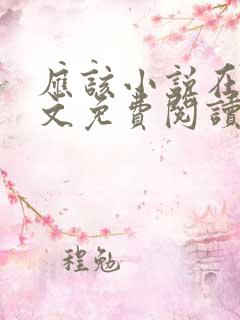 應該小說在
文免費閱讀
程勉